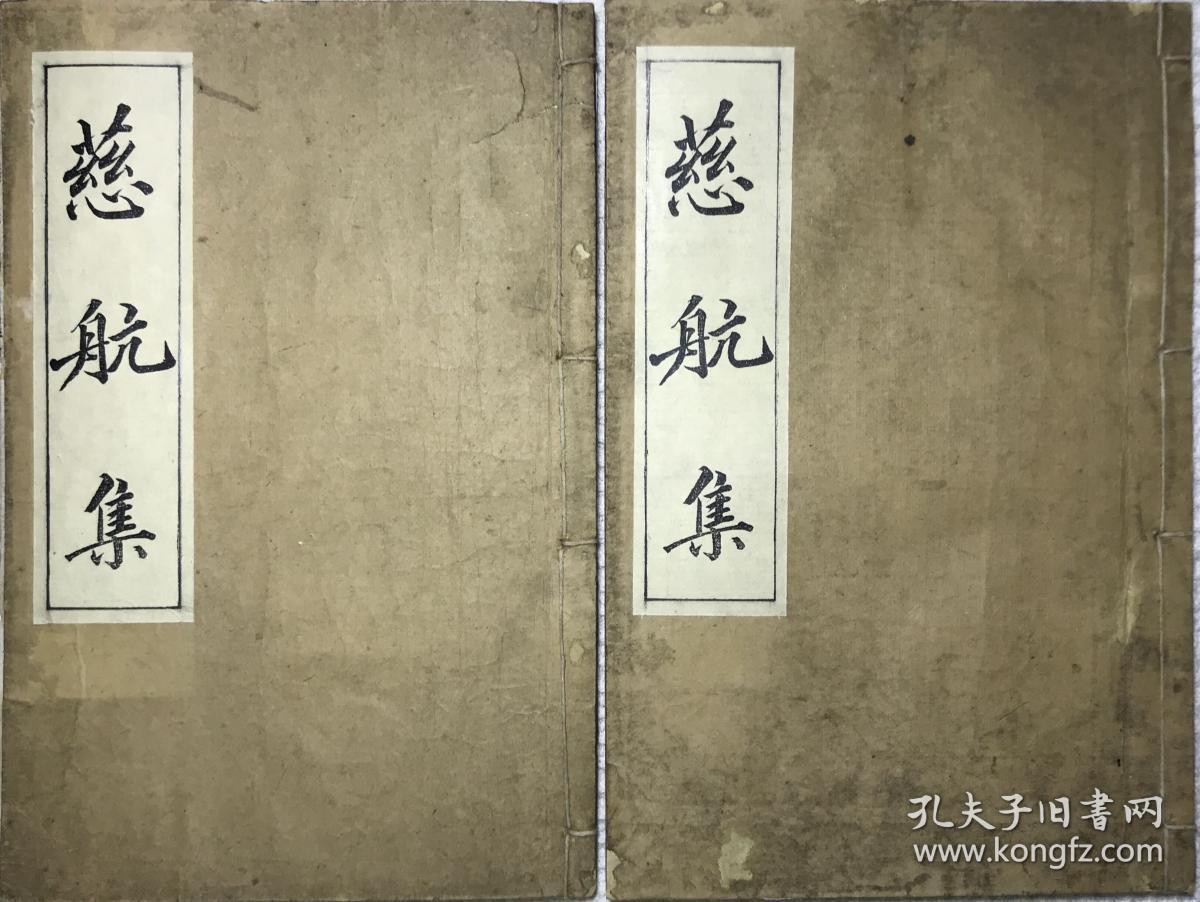 慈航集
慈航集
孔夫子旧書网
www.kongfz.com